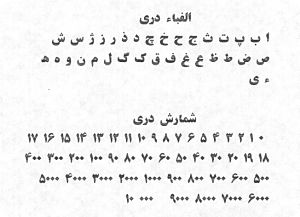 الفباء دری
ا ب پ ت ث ج ح خ چ د ذ ر ز ژ س ش
ص ض ط ظ ع غ ف ق ک گ ل م ن و ه ه
ء ی
شمارش دری
۰ ۱ ۲ ۳ ۴ ۵ ۶ ۷ ۸ ۹ ۱۰ ۱۱ ۱۲ ۱۳ ۱۴ ۱۵ ۱۶ ۱۷
۱۸ ۱۹ ۲۰ ۳۰ ۴۰ ۵۰ ۶۰ ۷۰ ۸۰ ۹۰ ۱۰۰ ۲۰۰ ۳۰۰ ۴۰۰
۵۰۰ ۶۰۰ ۷۰۰ ۸۰۰ ۹۰۰ ۱۰۰۰ ۲۰۰۰ ۳۰۰۰ ۴۰۰۰ ۵۰۰۰
۶۰۰۰ ۷۰۰۰ ۸۰۰۰ ۹۰۰۰ ۱۰ ۰۰۰